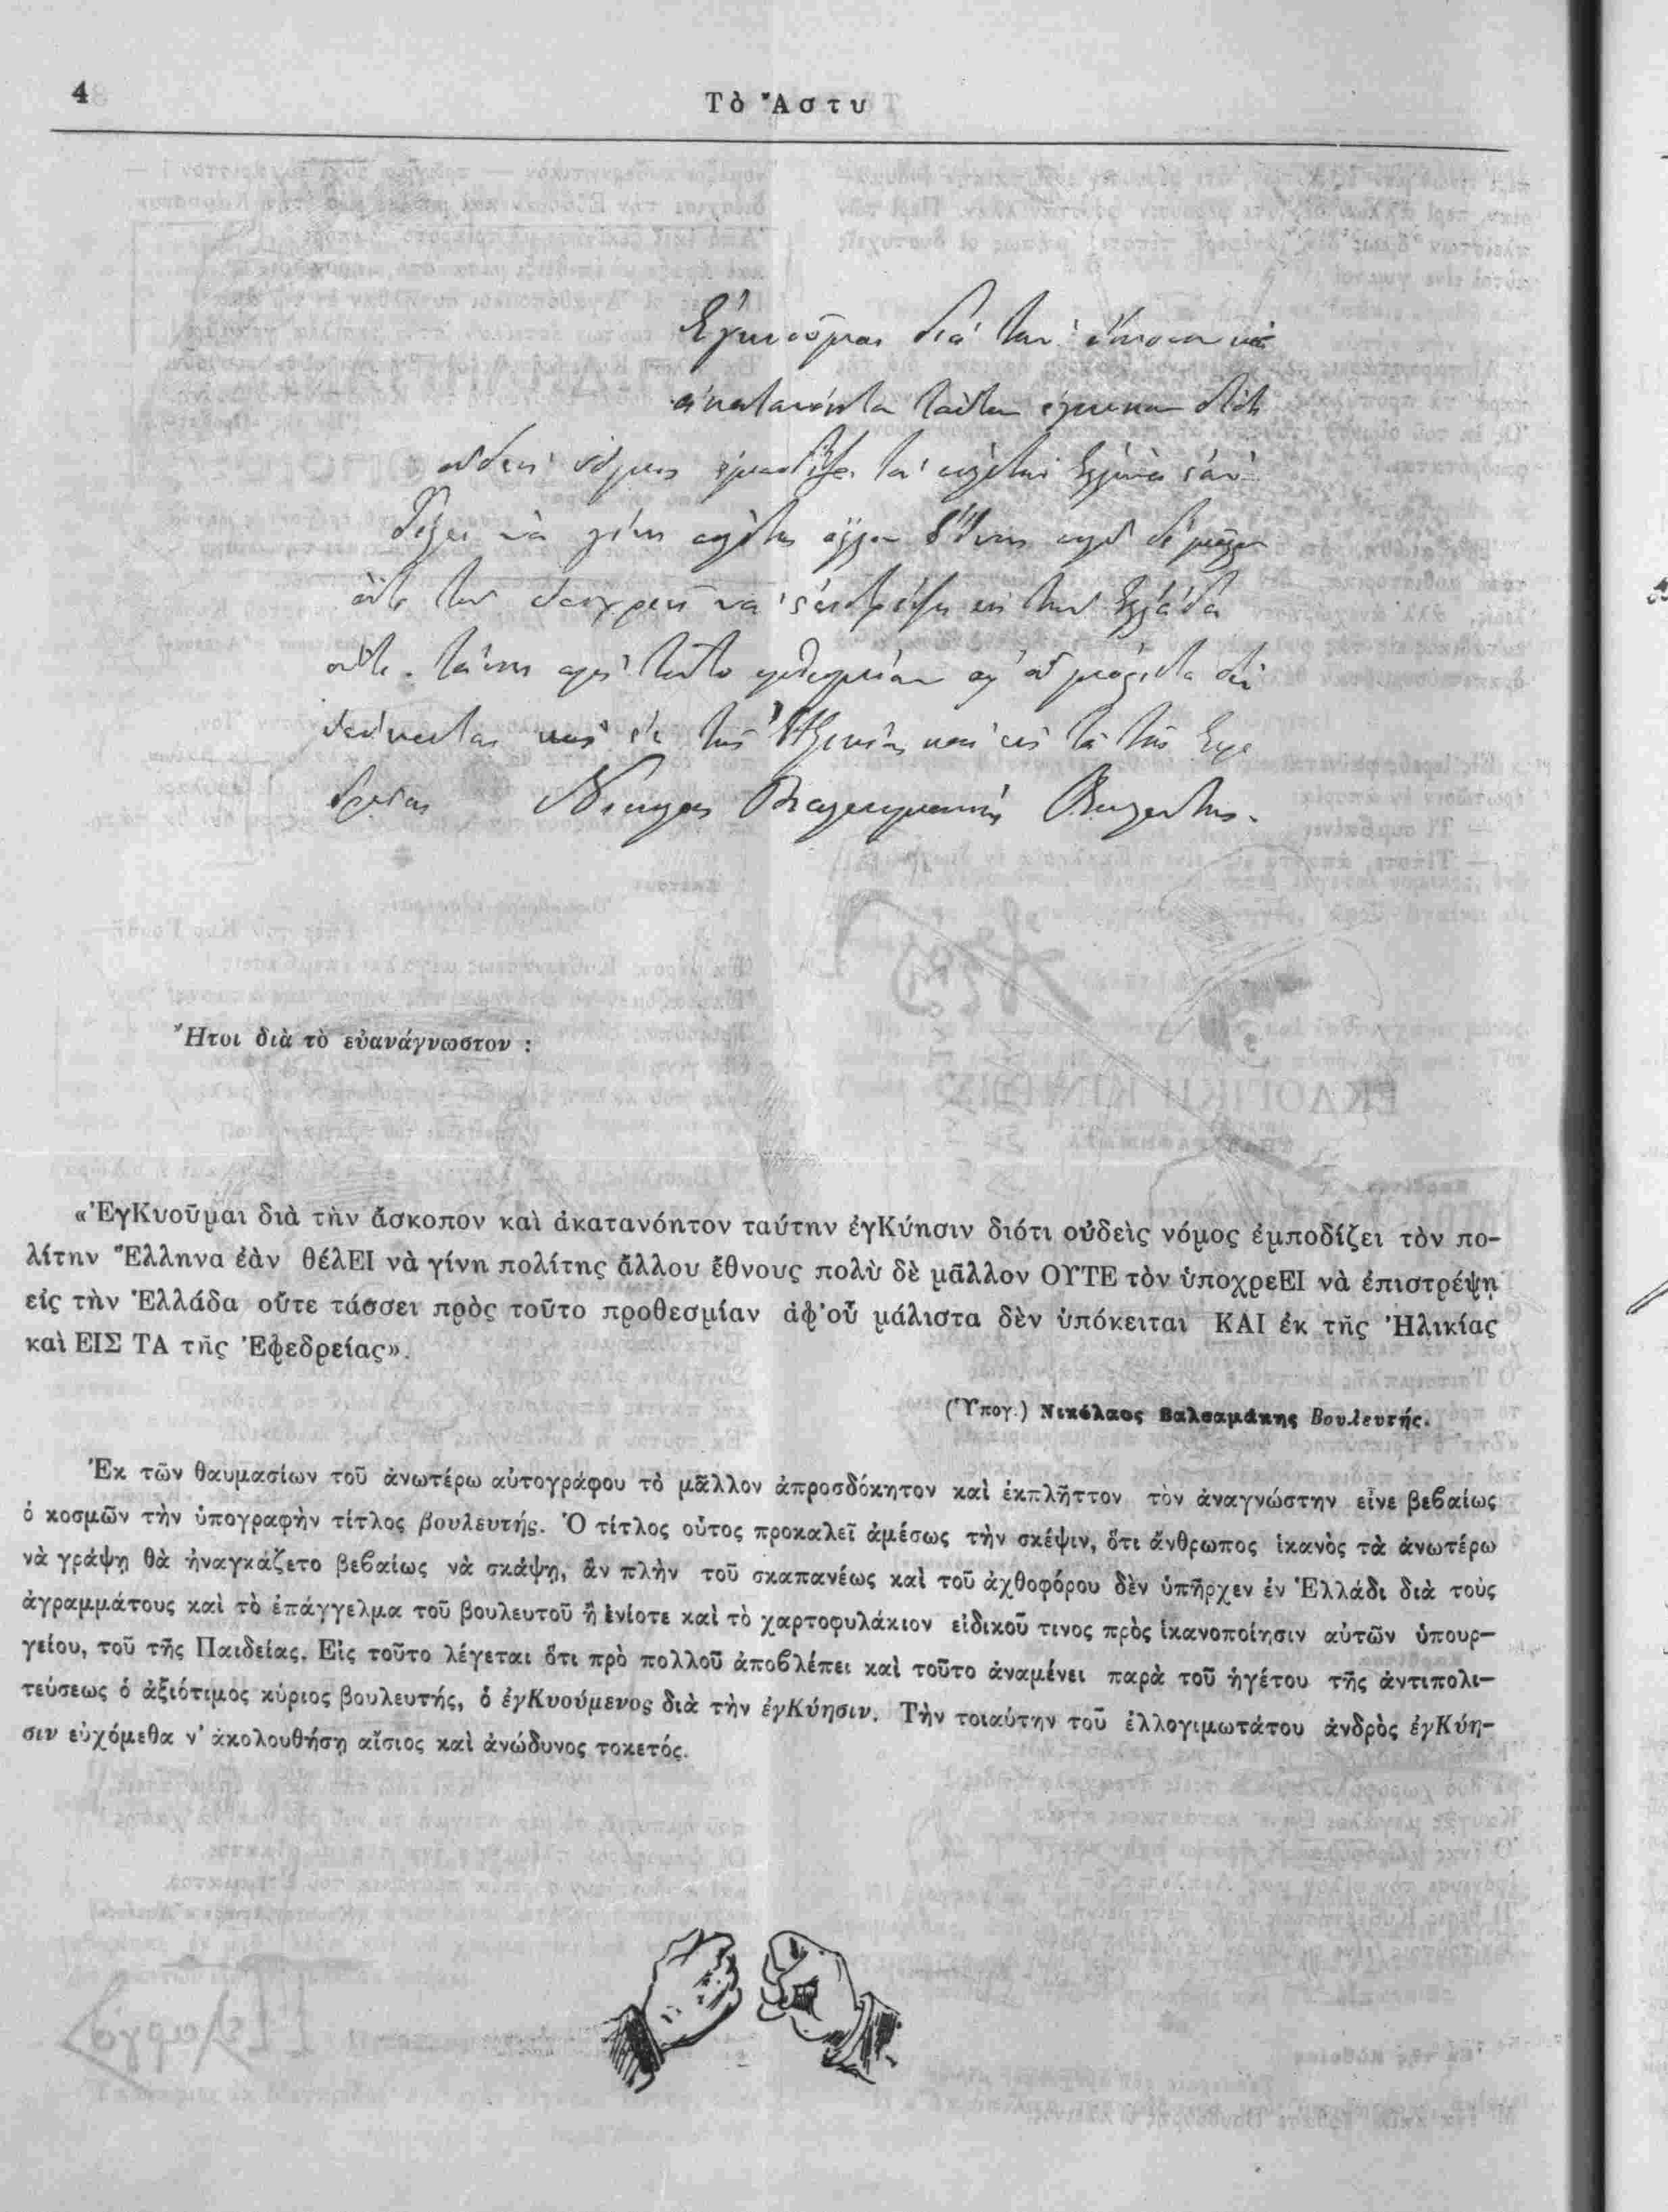 4
Τὸ Ἄστυ
Ἐγκυοῦμαι διὰ τὴν ἄσκοπον καὶ
ἀκατανόητον ταύτην ἐγκύησιν διότι
οὐδεὶς νόμος ἐμποδίζει τὸν πολίτην Ἕλληνα ἐὰν
θέλει νὰ γίνη πολίτης ἄλλου ἔθνους πολὺ δὲ μᾶλλον
οὔτε τὸν ὑποχρεεῖ νὰ ἐπιστρέψῃ εἰς τὴν Ἑλλάδα
οὔτε τάσσει πρὸς τοῦτο προθεσμίαν ἀφ' οὗ μάλιστα δὲν
ὑπόκειται καὶ ἐκ τῆς Ἡλικίας καὶ εἰς τὰ τῆς Ἐφε
δρείας Νικόλαος Βαλσαμάκης Βουλευτής.
Ἤτοι διὰ τὸ εὐανάγνωστον :
«ἘγΚυοῦμαι διὰ τὴν ἄσκοπον καὶ ἀκατανόητον ταύτην ἐγΚύησιν διότι οὐδεὶς νόμος ἐμποδίζει τὸν πο-
λίτην Ἕλληνα ἐὰν θέλΕΙ νὰ γίνη πολίτης ἄλλου ἔθνους πολὺ δὲ μᾶλλον ΟΥΤΕ τὸν ὑποχρεΕΙ νὰ ἐπιστρέψῃ
εἰς τὴν Ἑλλάδα οὔτε τάσσει πρὸς τοῦτο προθεσμίαν ἀφ'οὗ μάλιστα δὲν ὑπόκειται ΚΑΙ ἐκ τῆς Ἡλικίας
καὶ ΕΙΣ ΤΑ τῆς Ἐφεδρείας».
(Ὑπογ.) Νικόλαος Βαλσαμάκης Βουλευτής.
Ἐκ τῶν θαυμασίων τοῦ ἀνωτέρω αὐτογράφου τὸ μᾶλλον ἀπροσδόκητον καὶ ἐκπλῆττον τὸν ἀναγνώστην εἶνε βεβαίως
ὁ κοσμῶν τὴν ὑπογραφὴν τίτλος βουλευτής. Ὁ τίτλος οὗτος προκαλεῖ ἀμέσως τὴν σκέψιν, ὅτι ἄνθρωπος ἱκανὸς τὰ ἀνωτέρω
νὰ γράψῃ θὰ ἠναγκάζετο βεβαίως νὰ σκάψῃ, ἂν πλὴν τοῦ σκαπανέως καὶ τοῦ ἀχθοφόρου δὲν ὑπῆρχεν ἐν Ἑλλάδι διὰ τοὺς
ἀγραμμάτους καὶ τὸ ἐπάγγελμα τοῦ βουλευτοῦ ἢ ἐνίοτε καὶ τὸ χαρτοφυλάκιον εἰδικοῦ τινος πρὸς ἱκανοποίησιν αὐτῶν ὑπουρ-
γείου, τοῦ τῆς Παιδείας. Εἰς τοῦτο λέγεται ὅτι πρὸ πολλοῦ ἀποβλέπει καὶ τοῦτο ἀναμένει παρὰ τοῦ ἡγέτου τῆς ἀντιπολι-
τεύσεως ὁ ἀξιότιμος κύριος βουλευτής, ὁ ἐγΚυούμενος διὰ τὴν ἐγΚύησιν. Τὴν τοιαύτην τοῦ ἐλλογιμωτάτου ἀνδρὸς ἐγΚύη-
σιν εὐχόμεθα ν' ἀκολουθήσῃ αἴσιος καὶ ἀνώδυνος τοκετός.